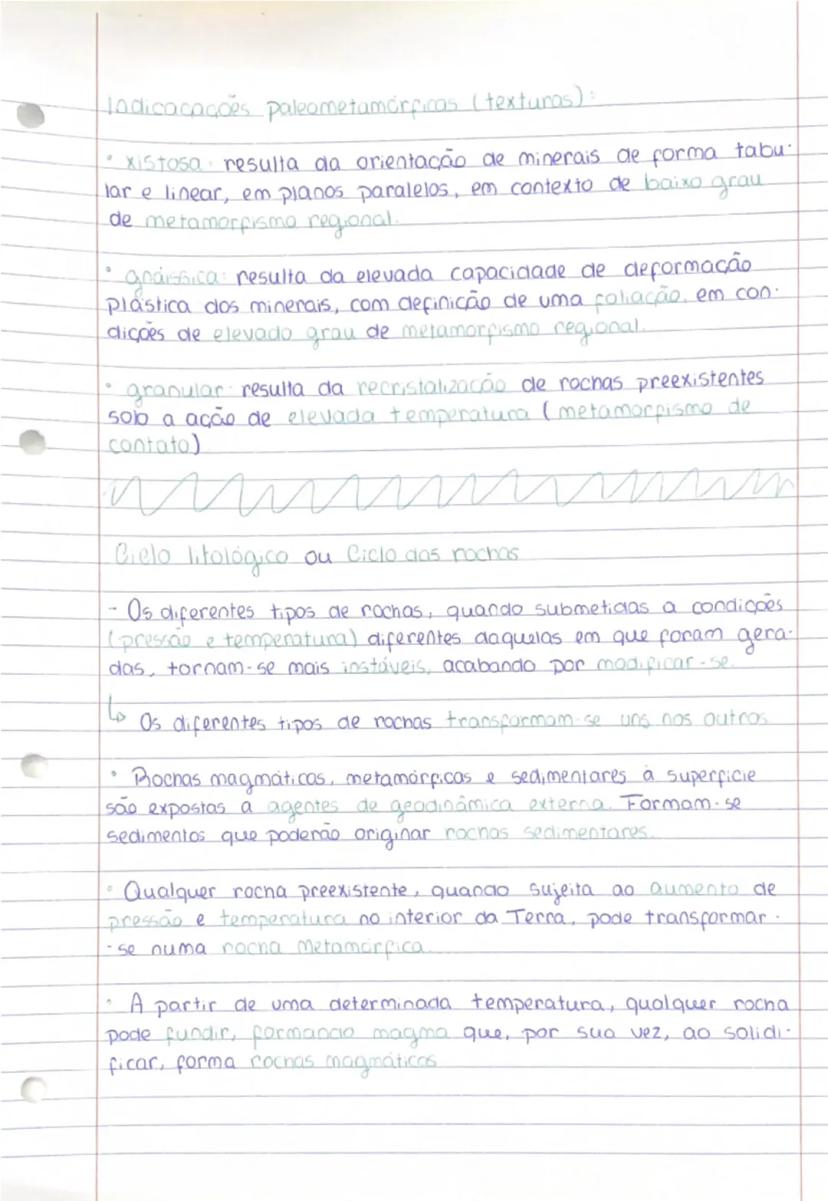 Indicacações paleometamórficas (texturas):
• xistosa: resulta da orientação de minerais de forma tabu-
lar e linear, em planos paralelos, em contexto de baixo grau
de metamorfismo regional.
• gnáissica: resulta da elevada capacidade de deformação
plástica dos minerais, com definição de uma foliação, em con-
dições de elevado grau de metamorfismo regional.
• granular: resulta da recristalização de rochas preexistentes
sob a ação de elevada temperatura (metamorfismo de
contato)
Ciclo litológico ou Ciclo das rochas
- Os diferentes tipos de rochas, quando submetidas a condições
(pressão e temperatura) diferentes daquelas em que foram gera-
das, tornam-se mais instáveis, acabando por modificar-se.
↳ Os diferentes tipos de rochas transformam-se uns nos outros
• Rochas magmáticas, metamórficas e sedimentares à superfície
são expostas a agentes de geodinâmica externa. Formam-se
sedimentos que poderão originar rochas sedimentares.
• Qualquer rocha preexistente, quando sujeita ao aumento de
pressão e temperatura no interior da Terra, pode transformar-
-se numa rocha metamórfica.
• A partir de uma determinada temperatura, qualquer rocha
pode fundir, formando magma que, por sua vez, ao solidi-
ficar, forma rochas magmáticas